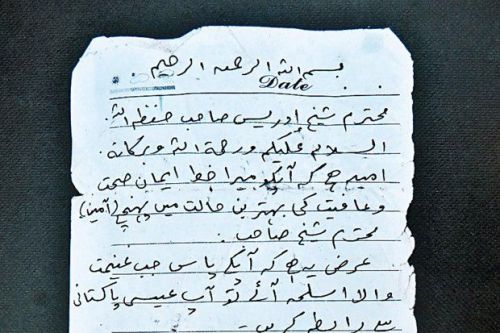 بسم اللہ الرحمٰن الرحیم
Date
محترم شیخ ادریس صاحب حفظہ اللہ
السلام علیکم ورحمۃ اللہ وبرکاتہ
امید ہے کہ آپکو میرا خط ایمان صحت
وعافیت کی بہترین حالت میں پہنچے (آمین)
محترم شیخ صاحب:
عرض یہ ہے کہ آپکے پاس جب غنیمت
والا اسلحہ آئے تو آپ عیسی پاکستانی
سے رابطہ کریں۔